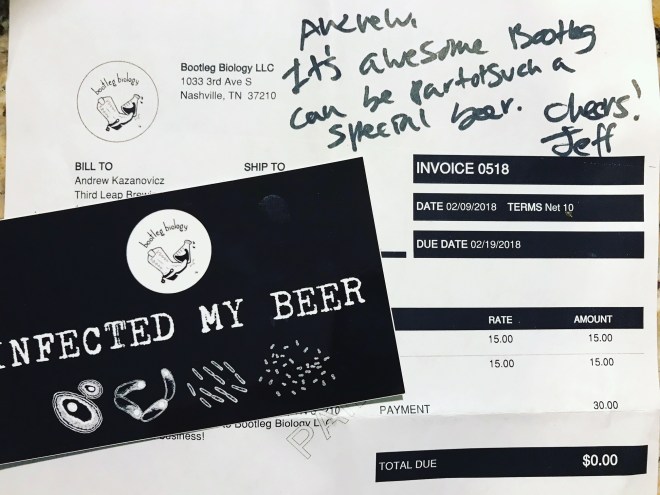 Andrew,
It's awesome Bootleg
can be part of such a
special beer. Cheers!
Jeff
bootleg biology
Bootleg Biology LLC
1033 3rd Ave S
Nashville, TN 37210
BILL TO
Andrew Kazanovicz
Third Leap
SHIP TO
INVOICE 0518
DATE 02/09/2018 TERMS Net 10
DUE DATE 02/19/2018
bootleg biology
INFECTED MY BEER
RATE AMOUNT
15.00 15.00
15.00 15.00
PAYMENT 30.00
to Bootleg Biology
business!
TOTAL DUE $0.00